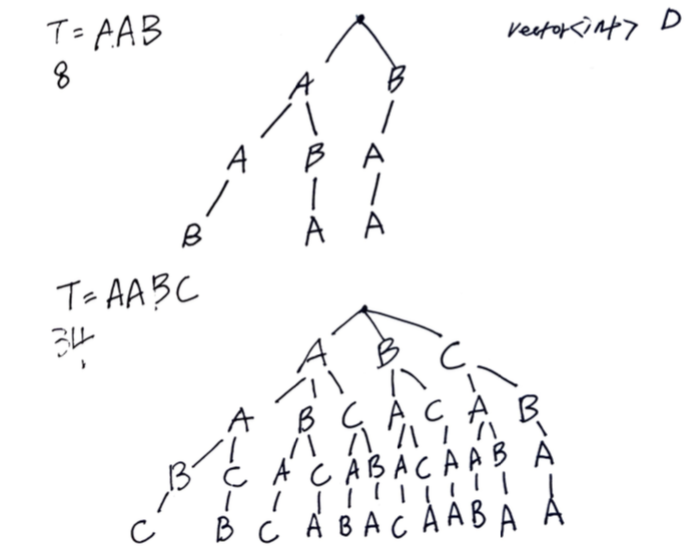 T = AAB
8
vector<int> D
A B
A B A
B A A
T = AABC
34
A B C
A B C A C A B
B C A C A B A C A A B A
C B C A B A C A A B A A